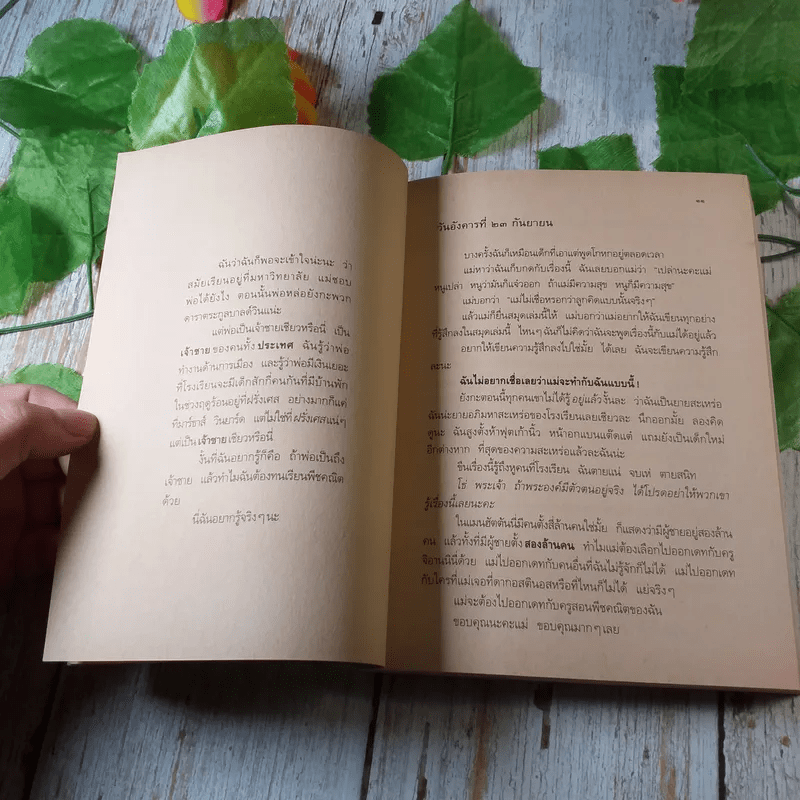 ฉันว่าฉันก็พอจะเข้าใจน่ะนะ ว่า
สมัยเรียนอยู่ที่มหาวิทยาลัย แม่ชอบ
พ่อได้ยังไง ตอนนั้นพ่อหล่อยังกะพวก
ดาราตระกูลบาลด์วินแน่ะ
แต่พ่อเป็นเจ้าชายเชียวหรือนี่ เป็น
เจ้าชายของคนทั้งประเทศ ฉันรู้ว่าพ่อ
ทำงานด้านการเมือง และรู้ว่าพ่อมีเงินเยอะ
ที่โรงเรียนจะมีเด็กสักกี่คนกันที่มีบ้านพัก
ในช่วงฤดูร้อนอยู่ที่ฝรั่งเศส อย่างมากก็แค่
ที่มาร์ธาส์ วินยาร์ด แต่ไม่ใช่ที่ฝรั่งเศสแน่ๆ
แต่เป็นเจ้าชายเชียวหรือนี่
งั้นที่ฉันอยากรู้ก็คือ ถ้าพ่อเป็นถึง
เจ้าชาย แล้วทำไมฉันต้องทนเรียนพีชคณิต
ด้วย
นี่ฉันอยากรู้จริงๆนะ
๑๑
วันอังคารที่ ๒๓ กันยายน
บางครั้งฉันก็เหมือนเด็กที่เอาแต่พูดโกหกอยู่ตลอดเวลา
แม่หาว่าฉันเก็บกดกับเรื่องนี้ ฉันเลยบอกแม่ว่า "เปล่านะคะแม่
หนูเปล่า หนูว่ามันก็แจ๋วออก ถ้าแม่มีความสุข หนูก็มีความสุข"
แม่บอกว่า "แม่ไม่เชื่อหรอกว่าลูกคิดแบบนั้นจริงๆ"
แล้วแม่ก็ยื่นสมุดเล่มนี้ให้ แม่บอกว่าแม่อยากให้ฉันเขียนทุกอย่าง
ที่รู้สึกลงในสมุดเล่มนี้ ไหนๆ ฉันก็ไม่คิดว่าฉันจะพูดเรื่องนี้กับแม่ได้อยู่แล้ว
อยากให้เขียนความรู้สึกลงไปใช่มั้ย ได้เลย ฉันจะเขียนความรู้สึก
ละนะ
ฉันไม่อยากเชื่อเลยว่าแม่จะทำกับฉันแบบนี้!
ยังกะตอนนี้ทุกคนเขาไม่ได้รู้อยู่แล้วงั้นละ ว่าฉันเป็นยายสะเหร่อ
ฉันน่ะยายอภิมหาสะเหร่อของโรงเรียนเลยเชียวละ นึกออกมั้ย ลองคิด
ดูนะ ฉันสูงตั้งห้าฟุตเก้านิ้ว หน้าอกแบนแต๊ดแต๋ แถมยังเป็นเด็กใหม่
อีกต่างหาก ที่สุดของความสะเหร่อแล้วละฉันน่ะ
ขืนเรื่องนี้รู้ถึงหูคนที่โรงเรียน ฉันตายแน่ จบเห่ ตายสนิท
โธ่ พระเจ้า ถ้าพระองค์มีตัวตนอยู่จริง ได้โปรดอย่าให้พวกเขา
รู้เรื่องนี้เลยนะคะ
ในแมนฮัตตันนี่มีคนตั้งสี่ล้านคนใช่มั้ย ก็แสดงว่ามีผู้ชายอยู่สองล้าน
คน แล้วทั้งที่มีผู้ชายตั้งสองล้านคน ทำไมแม่ต้องเลือกไปออกเดทกับครู
จิอานนินีด้วย แม่ไปออกเดทกับคนอื่นที่ฉันไม่รู้จักก็ไม่ได้ แม่ไปออกเดท
กับใครที่แม่เจอที่ดากอสติโนสหรือที่ไหนก็ไม่ได้ แย่จริงๆ
แม่จะต้องไปออกเดทกับครูสอนพีชคณิตของฉัน
ขอบคุณนะคะแม่ ขอบคุณมากๆเลย